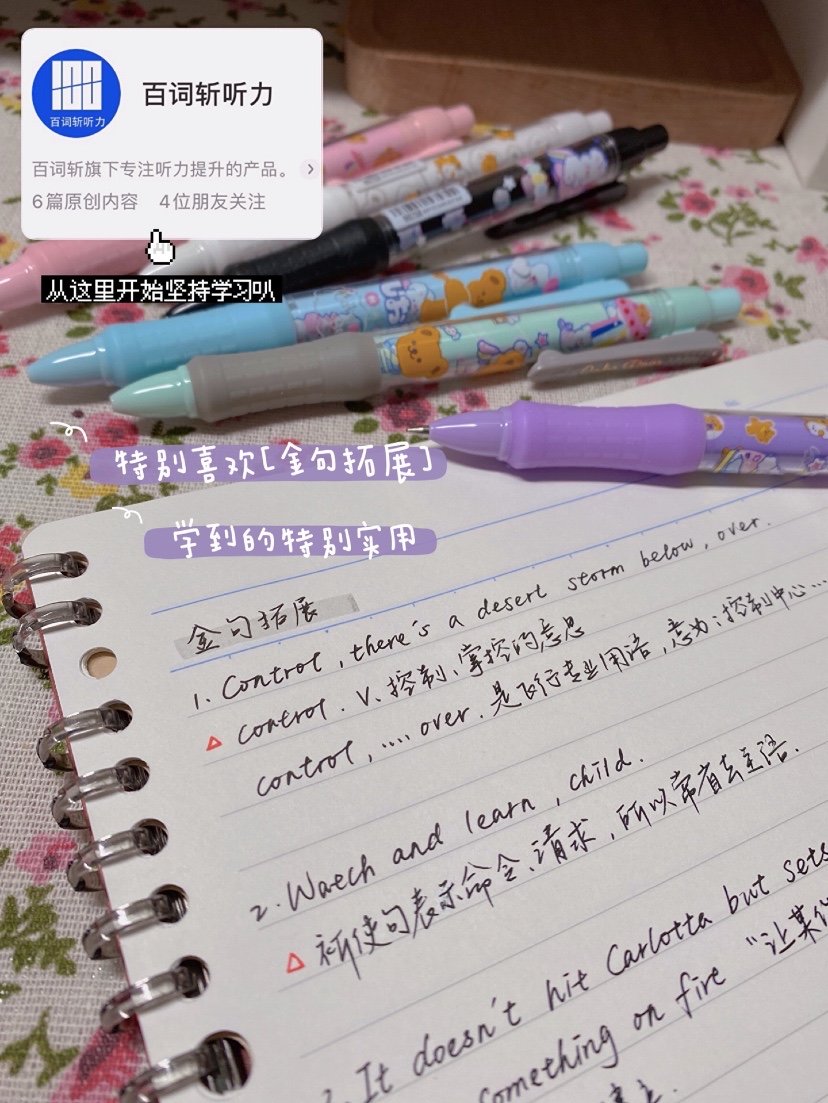 百词斩听力
百词斩听力
百词斩旗下专注听力提升的产品。
6篇原创内容 4位朋友关注
从这里开始坚持学习叭
特别喜欢[金句拓展]
学到的特别实用
金句拓展
1. Control, there's a desert storm below, over.
control. v. 控制、掌控的意思
control, .... over. 是飞行专业用语,意为:控制中心...
2. Watch and learn, child.
祈使句表示命令、请求,所以常省去主语.
3. It doesn't hit Carlotta but sets
something on fire "让某